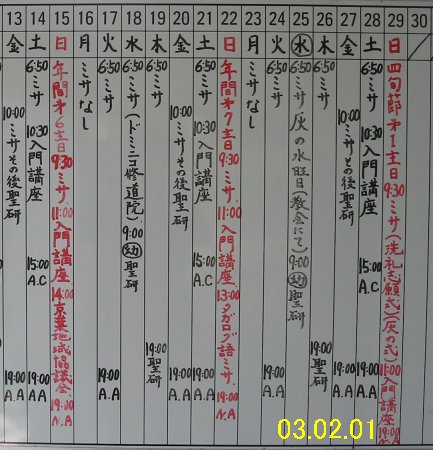 13 14 15 16 17 18 19 20 21 22 23 24 25 26 27 28 29 30
金 土 日 月 火 水 木 金 土 日 月 火 水 木 金 土 日
10:00 ミサその後聖研 19:00 A.A
6:50 ミサ 10:30 入門講座 15:00 A.C 19:00 A.A
年間オ6主日 9:30 ミサ 11:00 入門講座 14:00 京葉地域協議会 19:00 N.A
ミサなし
6:50 ミサ 19:00 A.A
6:50 ミサ(ドミニコ修道院) 9:00 幼 聖研
6:50 ミサ 19:00 聖研
10:00 ミサその後聖研 19:00 A.A
6:50 ミサ 10:30 入門講座 15:00 A.C 19:00 A.A
年間オ7主日 9:30 ミサ 11:00 入門講座 13:00 タガログ語ミサ 19:00 N.A
ミサなし
6:50 ミサ 19:00 A.A
6:50 ミサ 灰の水曜日(教会にて) 9:00 幼 聖研
6:50 ミサ 19:00 聖研
10:00 ミサその後聖研 19:00 A.A
6:50 ミサ 10:30 入門講座 15:00 A.C 19:00 A.A
四旬節オ1主日 9:30 ミサ(洗礼志願式)(灰の式) 11:00 入門講座 19:00 N.A
03.02.01